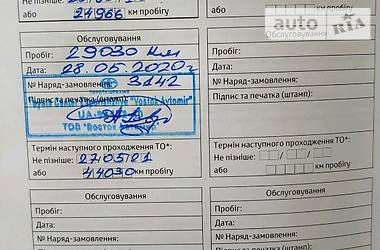 Не пізніше:
або 24966 км пробігу
auto RIA
Обслуговування
Пробіг: 29030 км
Дата: 28.05.2020г
№ Наряд-замовлення: 3142
Підпис та печатка (штамп):
ТОВ "Восток
Термін наступного проходження ТО*:
Не пізніше: 27.05.21
або 44030 км пробігу
Обслуговування
Пробіг:
Дата:
№ Наряд-замовлення:
або км пробігу
Обслуговування
Пробіг:
Дата:
№ Наряд-замовлення:
Підпис та печатка (штамп):
Термін наступного проходження ТО*:
Не пізніше:
або км пробігу
Обслуговування
Пробіг:
Дата:
№ Наряд-замовлення: